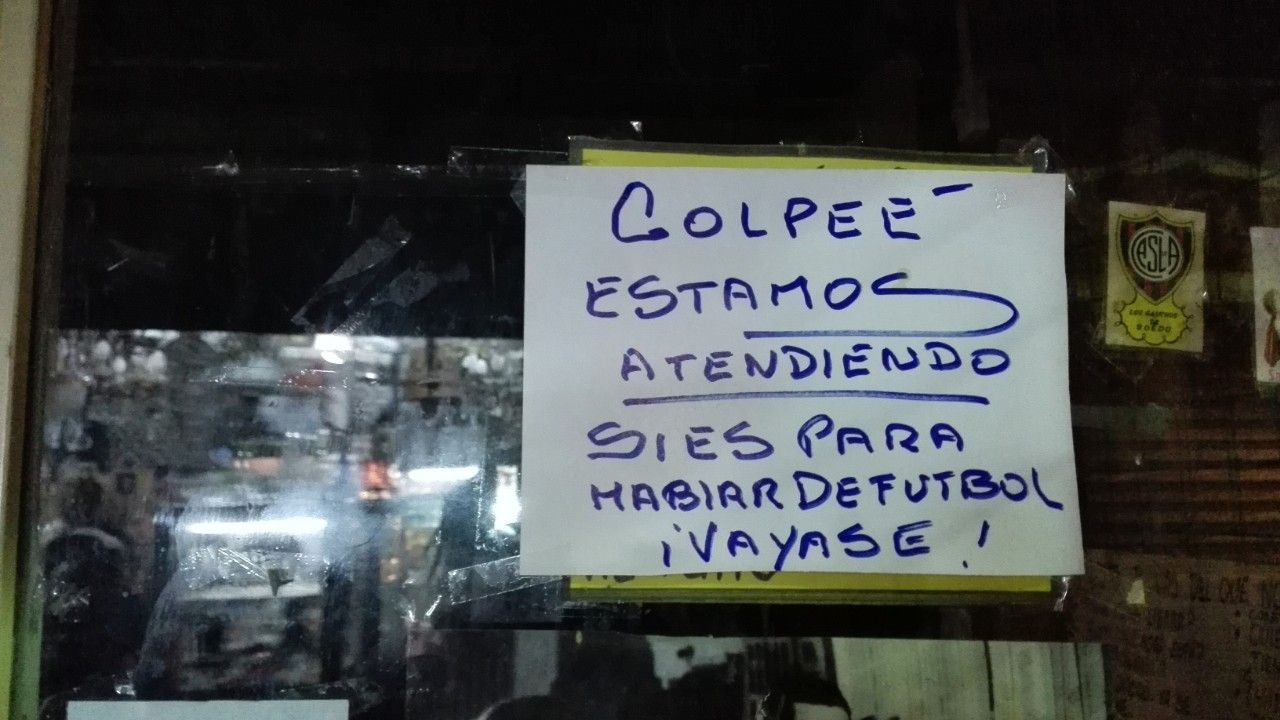 GOLPEÉ
ESTAMOS
ATENDIENDO
SI ES PARA
HABLAR DE FUTBOL
¡VAYASE!
CASLA
LOS GAUCHOS
DE
BOEDO